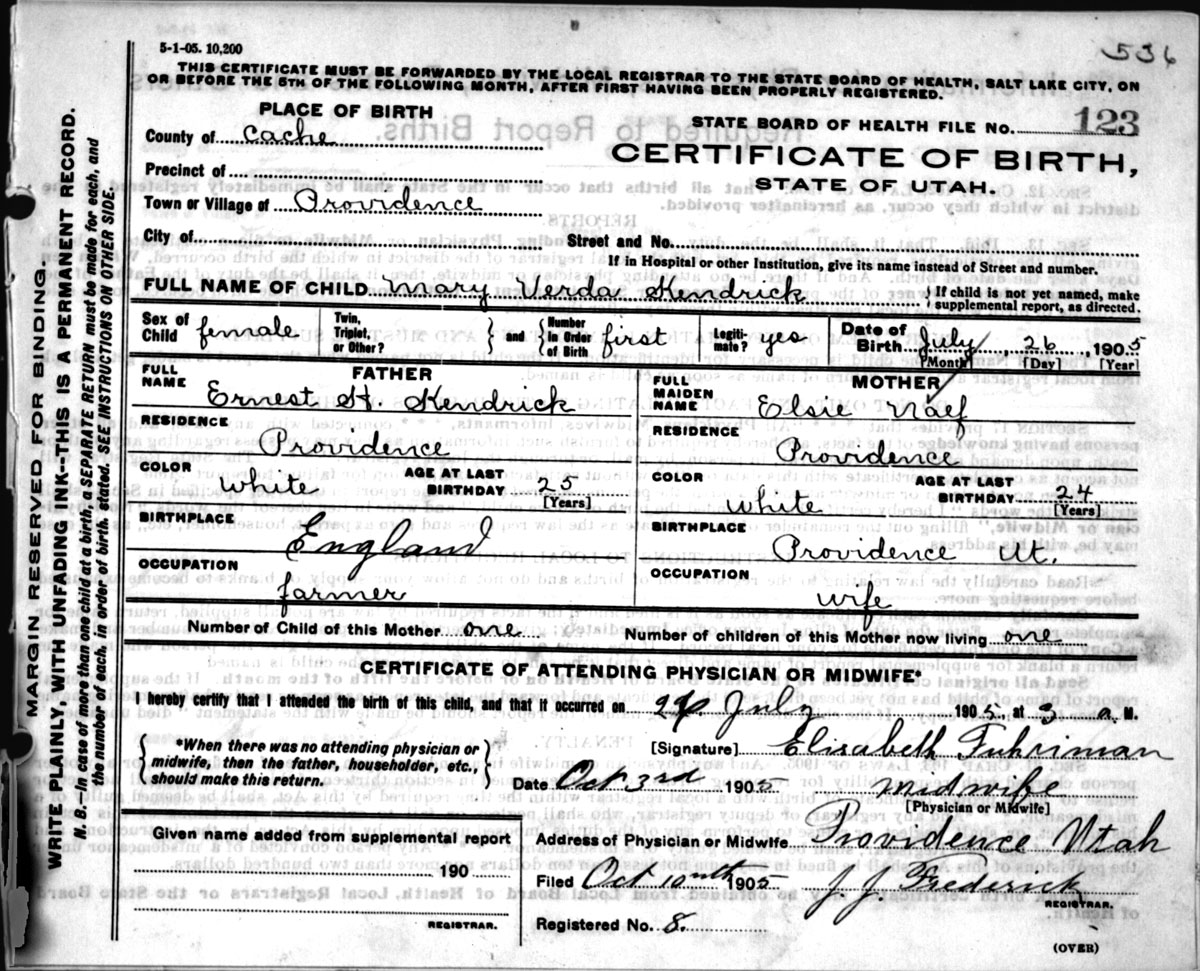 5-1-05. 10,200
536
THIS CERTIFICATE MUST BE FORWARDED BY THE LOCAL REGISTRAR TO THE STATE BOARD OF HEALTH, SALT LAKE CITY, ON
OR BEFORE THE 5TH OF THE FOLLOWING MONTH, AFTER FIRST HAVING BEEN PROPERLY REGISTERED.
PLACE OF BIRTH
STATE BOARD OF HEALTH FILE NO. 123
County of Cache
CERTIFICATE OF BIRTH,
STATE OF UTAH.
Precinct of
Town or Village of Providence
City of Street and No.
If in Hospital or other Institution, give its name instead of Street and number.
FULL NAME OF CHILD Mary Verda Kendrick { If child is not yet named, make supplemental report, as directed.
Sex of Child female Twin, Triplet, or Other? } and { Number in Order of Birth first Legiti-mate? yes Date of Birth July, 26, 1905
[Month] [Day] [Year]
FATHER
FULL NAME Ernest H. Kendrick
RESIDENCE Providence
COLOR White AGE AT LAST BIRTHDAY 25
[Years]
BIRTHPLACE England
OCCUPATION farmer
MOTHER
FULL MAIDEN NAME Elsie Näef
RESIDENCE Providence
COLOR White AGE AT LAST BIRTHDAY 24
[Years]
BIRTHPLACE Providence Ut.
OCCUPATION wife
Number of Child of this Mother one Number of children of this Mother now living one
CERTIFICATE OF ATTENDING PHYSICIAN OR MIDWIFE*
I hereby certify that I attended the birth of this child, and that it occurred on July 1905, at 3 a M.
{ *When there was no attending physician or
midwife, then the father, householder, etc.,
should make this return. }
[Signature] Elisabeth Fuhriman
Date Oct 3rd 1905 midwife
[Physician or Midwife]
Given name added from supplemental report
190
REGISTRAR.
Address of Physician or Midwife Providence Utah
Filed Oct 10nth 1905 J. J. Frederick
REGISTRAR.
Registered No. 8.
(OVER)
MARGIN RESERVED FOR BINDING.
WRITE PLAINLY, WITH UNFADING INK--THIS IS A PERMANENT RECORD.
N. B.--In case of more than one child at a birth, a SEPARATE RETURN must be made for each, and
the number of each. in order of birth. stated. SEE INSTRUCTIONS ON OTHER SIDE.